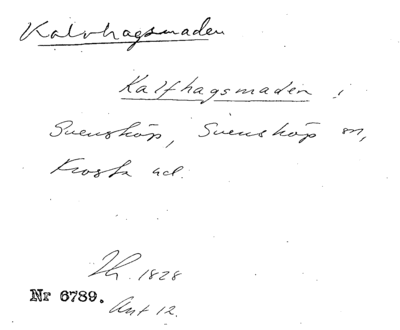 Kalvhagsmaden
Kalfhagsmaden i
Svensköp, Svensköp sn,
Frosta hd.
1828
Nr 6789.
Akt 12.